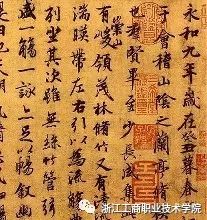 永和九年歲在癸丑暮春
于會稽山陰之蘭亭脩
也羣賢畢至少長咸集
有崇山峻領茂林脩竹又有
湍暎帶左右引以為流
列坐其次雖無絲竹管
盛一觴一詠亦足以暢敘
是日也天朗氣
浙江工商职业技术学院